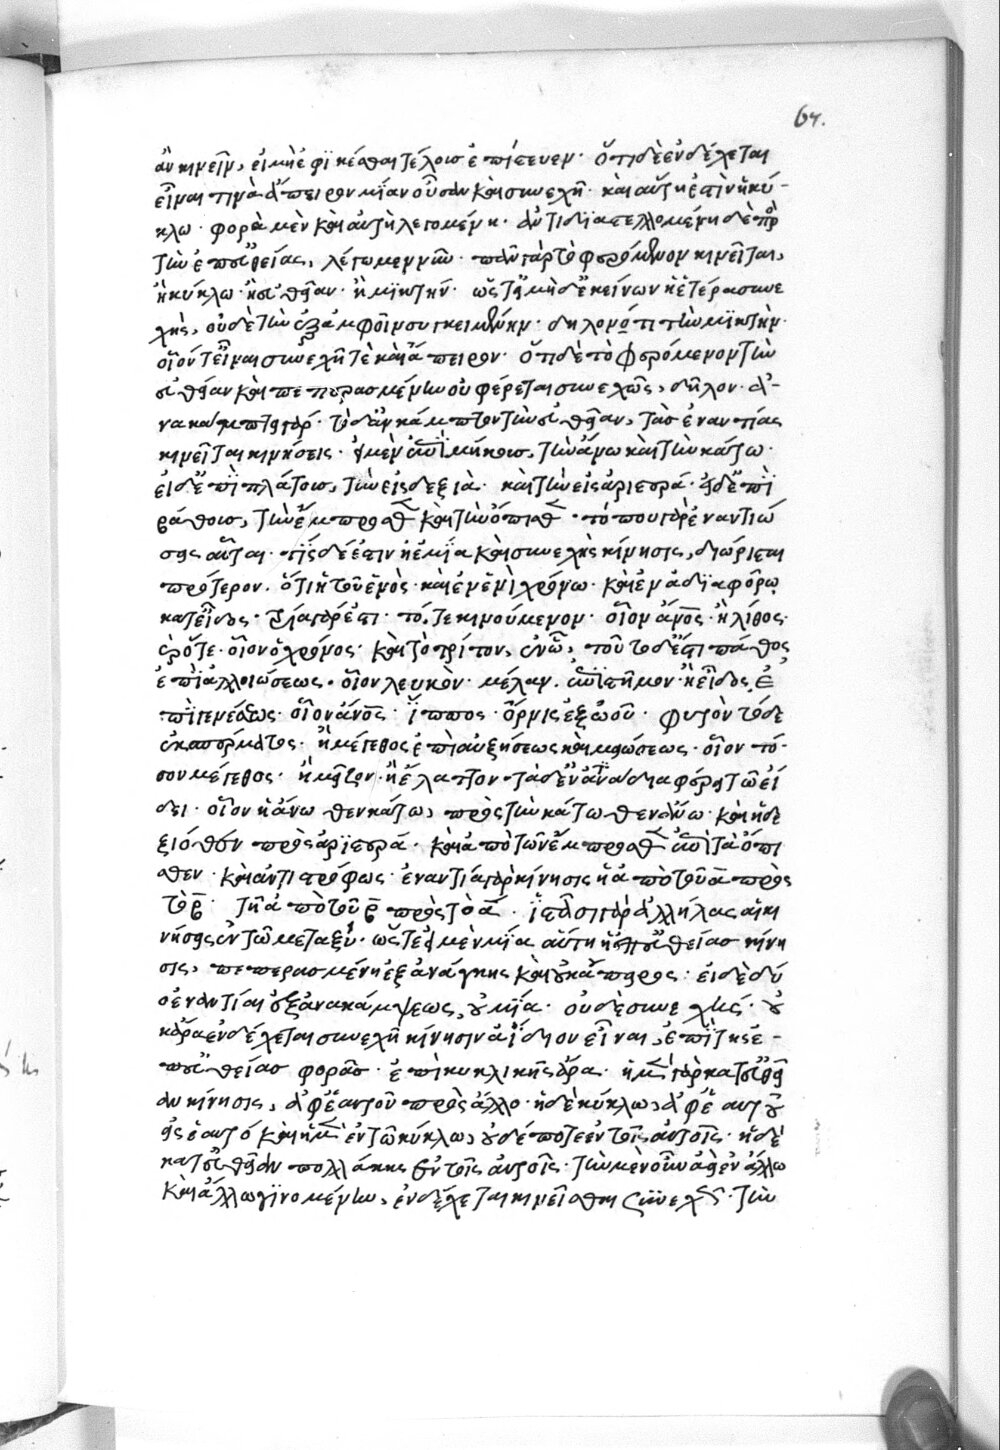 64.
ἂν κινεῖν, εἰ μὴ ἐφικέσθαι τέλους ἐπίστευεν · ὅτι δὲ ἐνδέχεται
εἶναί τινα ἄπειρον μίαν οὖσαν καὶ συνεχῆ · καὶ αὕτη ἐστὶν ἡ κύ-
κλω · φορὰ μὲν καὶ αὐτὴ λεγομένη · ἀντιδιαστελλομένη δὲ πρὸς
τὴν ἐπ' εὐθείας, λέγωμεν νῦν · πᾶν γὰρ τὸ φερόμενον κινεῖται,
ἢ κύκλω · ἢ εὐθεῖαν · ἢ μικτήν · ὥστ' εἰ μηδ' ἐκείνων ἡ ἑτέρα συνε
χὴς, οὐδὲ τὴν ἐξ ἀμφοῖν συγκειμένην · δηλονότι τὴν μικτὴν ·
οἷόν τε εἶναι συνεχῆ τὲ καὶ ἄπειρον · ὅτι δὲ τὸ φερόμενον τὴν
εὐθεῖαν καὶ πεπερασμένην οὐ φέρεται συνεχῶς, δῆλον · ἀ-
νακάμπτει γάρ · τὸ δ' ἀνακάμπτον τὴν εὐθεῖαν, τὰς ἐναντίας
κινεῖται κινήσεις · εἰ μὲν ἐπὶ μήκους, τὴν ἄνω καὶ τὴν κάτω ·
εἰ δ' ἐπὶ πλάτους, τὴν εἰς δεξιὰ · καὶ τὴν εἰς ἀριστερά · εἰ δ' ἐπὶ
βάθους, τὴν ἔμπροσθεν καὶ τὴν ὄπισθεν · τόπου γὰρ ἐναντιώ
σεις αὗται · τίς δέ ἐστιν ἡ μία καὶ συνεχὴς κίνησις, διώρισται
πρότερον. ὅτι ἡ τοῦ ἑνὸς · καὶ ἐν ἑνὶ χρόνω · καὶ ἐν ἀδιαφόρῳ
κατ' εἶδος · τρία γάρ ἐστι · τό, τε κινούμενον · οἷον ἄνος · ἢ λίθος ·
καὶ ὅτε · οἷον ὁ χρόνος · καὶ τὸ τρίτον, ἐν ᾧ, τοῦτο δ' ἐστι πάθος
ἐπὶ ἀλλοιώσεως · οἷον λευκὸν · μέλαν. ἢ εἶδος ἐ
πὶ γενέσεως · οἷον ἄνος · ἵππος · ὄρνις ἐξ ὠοῦ · φυτὸν τόδε
ἐκ σπέρματος · ἢ μέγεθος ἐπὶ αὐξήσεως καὶ μειώσεως · οἷον τό-
σον μέγεθος · ἢ μεῖζον · ἢ ἔλαττον · τὰ δ' ἐναντία διαφέρει τῷ εἴ
δει · οἷον ἡ ἄνωθεν κάτω, πρὸς τὴν κάτωθεν ἄνω · καὶ ἡ δε
ξιόθεν πρὸς ἀριστερά · καὶ ἀπὸ τῶν ἔμπροσθεν ἐπὶ τὰ ὄπι
σθεν · καὶ ἀντιστρόφως · ἐναντία γὰρ κίνησις ἡ ἀπὸ τοῦ α πρὸς
τὸ β · τῆ ἀπὸ τοῦ β πρὸς τὸ α · ἱστᾶσι γὰρ ἀλλήλας αἱ κι
νήσεις ἐν τῶ μεταξύ · ὥστ' εἰ μὲν μία αὕτη ἡ ἐπ' εὐθείας κίνη
σις, πεπερασμένη ἐξ ἀνάγκης καὶ οὐκ ἄπειρος · εἰ δὲ δύ
ο ἐναντίαι ἐξ ἀνακάμψεως, οὐ μία · οὐδὲ συνεχής · οὐ
κ ἄρα ἐνδέχεται συνεχῆ κίνησιν ἀΐδιον εἶναι, ἐπὶ τῆς ἐ-
π' εὐθείας φορᾶς · ἐπὶ κυκλικῆς ἄρα · ἡ μὲν γὰρ κατ' εὐθεῖ
αν κίνησις, ἀφ' ἑαυτοῦ πρὸς ἄλλο · ἡ δὲ κύκλω, ἀφ' ἑαυτοῦ
εἰς ἑαυτό καὶ ἡ μὲν ἐν τῶ κύκλω, οὐδέποτε ἐν τοῖς αὐτοῖς · ἡ δὲ
κατ' εὐθεῖαν πολλάκις ἐν τοῖς αὐτοῖς · τὴν μὲν οὖν ἀεὶ ἐν ἄλλω
καὶ ἄλλω γινομένην, ἐνδέχεται κινεῖσθαι συνεχῶς · τὴν